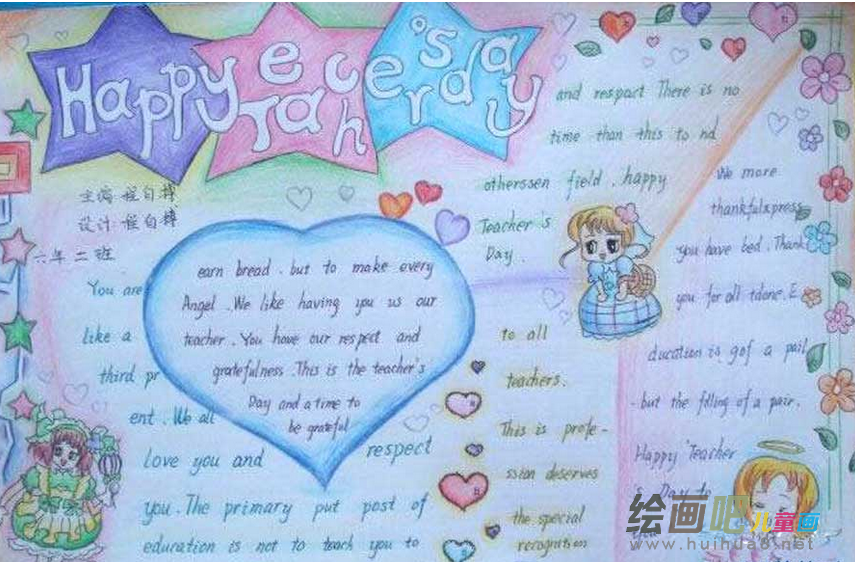 Happy Teacher's day
主编:程自搏
设计:程自搏
六年二班
You are
like a
third pr
ent. We all
love you and respect
you. The primary put post of
education is not to teach you to
earn bread. but to make every
Angel. We like having you us our
teacher. You have our respect and
gratefulness. This is the teacher's
Day and a time to
be grateful
to all
teachers.
This is profe-
ssion deserves
the special
recognition
and respact There is no
time than this to nd
otherssen field. happy
Teacher's
Day.
We more
thankfulxpress
you have bed. Thank
you for all tdone. E
ducation is gof a pail
-but the filling of a pair.
Happy Teacher
's Day to
you
绘画吧儿童画
www.huihua8.net